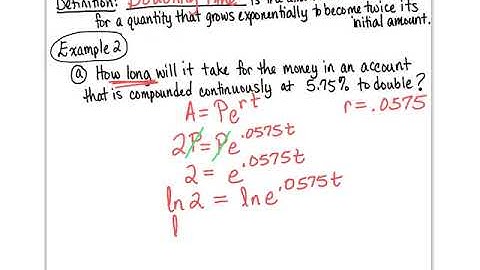 Definition: Doubling Time is the
for a quantity that grows exponentially to become twice its
initial amount.
Example 2
ⓐ How long will it take for the money in an account
that is compounded continuously at 5.75% to double?
A = Pe^rt r = .0575
2P = Pe^.0575t
2 = e^.0575t
ln 2 = ln e^.0575t
l